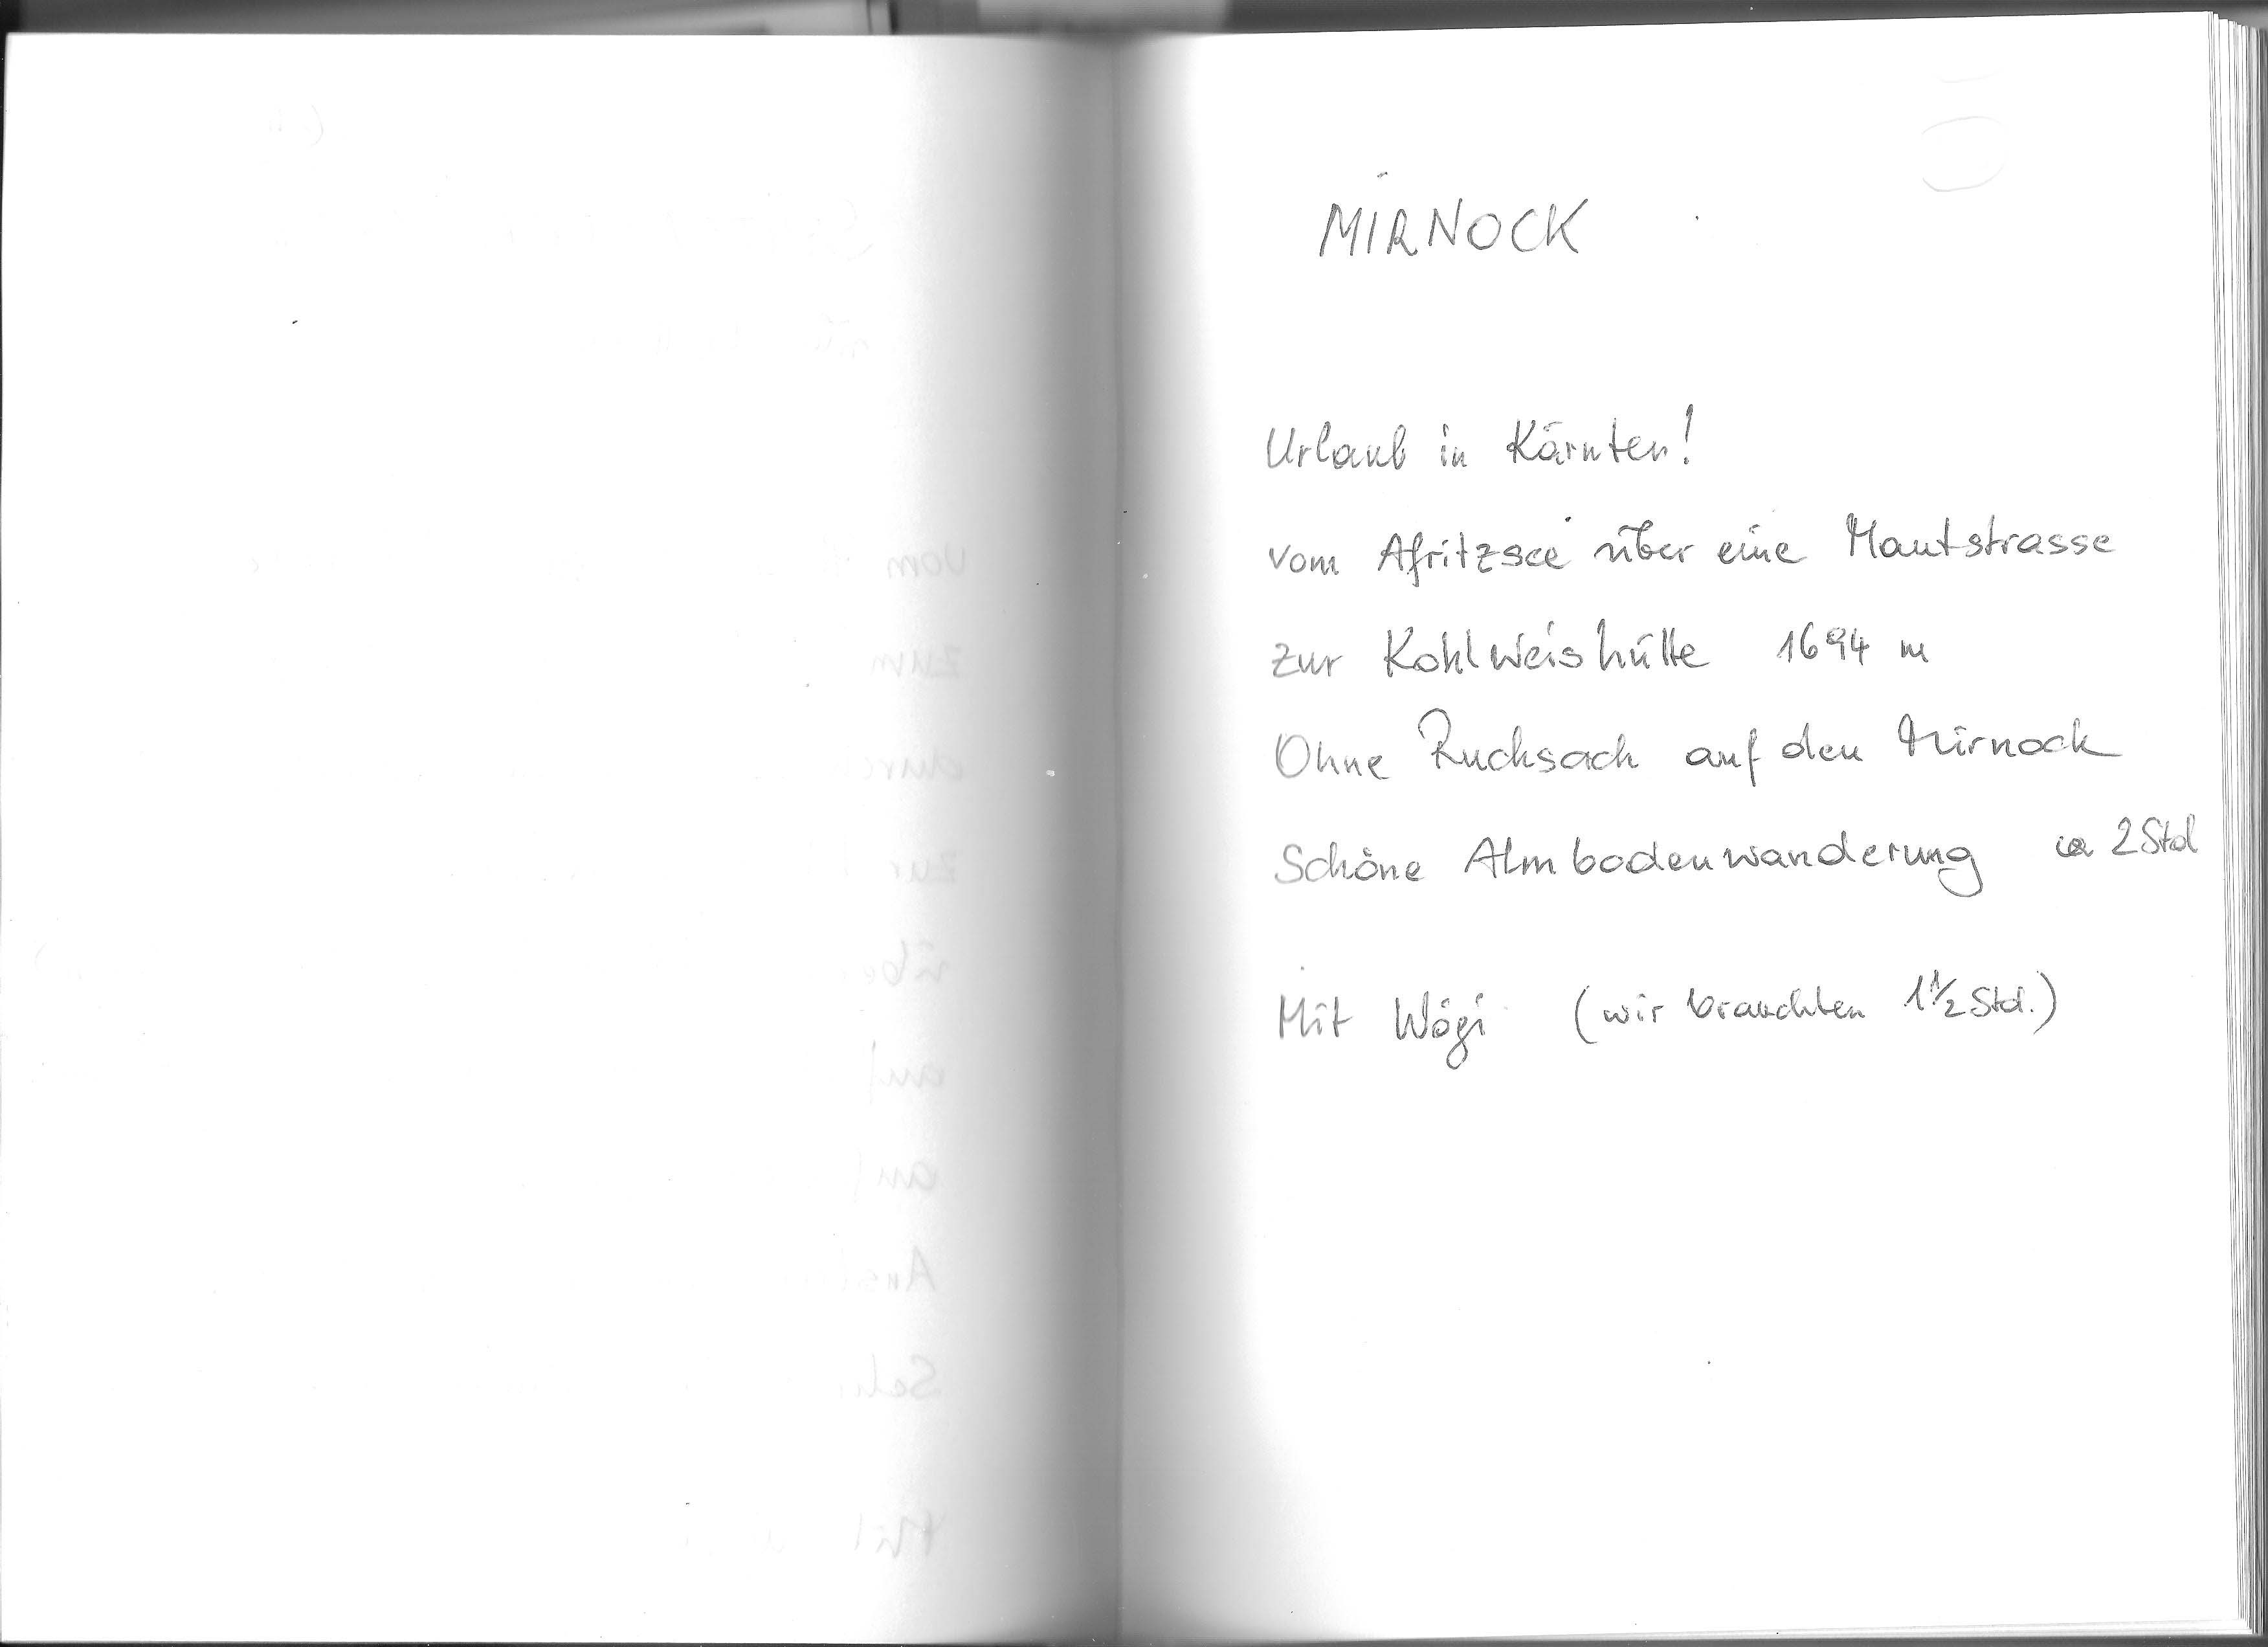 MIRNOCK
Urlaub in Kärnten!
vom Afritzsee über eine Mautstrasse
zur Kohlweishütte 1694 m
Ohne Rucksack auf den Mirnock
Schöne Almbodenwanderung ca 2 Std
Mit Wögi (wir brauchten 1 1/2 Std.)